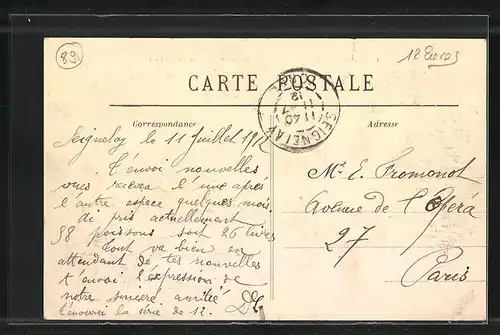 89
12 Euros
CARTE POSTALE
Correspondance
Adresse
SEIGNELAY
11 40
11 -7
12
Seignelay le 11 Juillet 1912
T'envoi nouvelles
vues recevra l'une après
l'autre espace quelques mois.
di pris actuellement
98 poissons soit 26 livres
Tout va bien en
attendant de tes nouvelles
t'envoi l'expression de
notre sincère amitié
t'envoverrai la série de 12.
Mr E. Fromonot
Avenue de l'Opéra
27
Paris